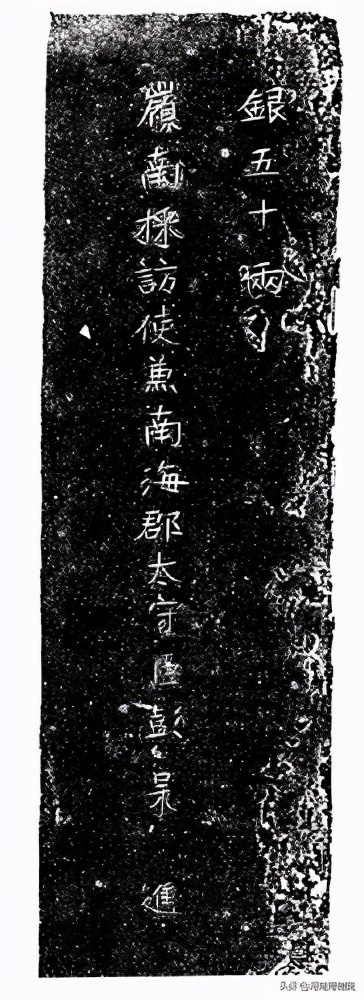 銀五十兩
嶺南採訪使兼南海郡太守臣彭杲 進